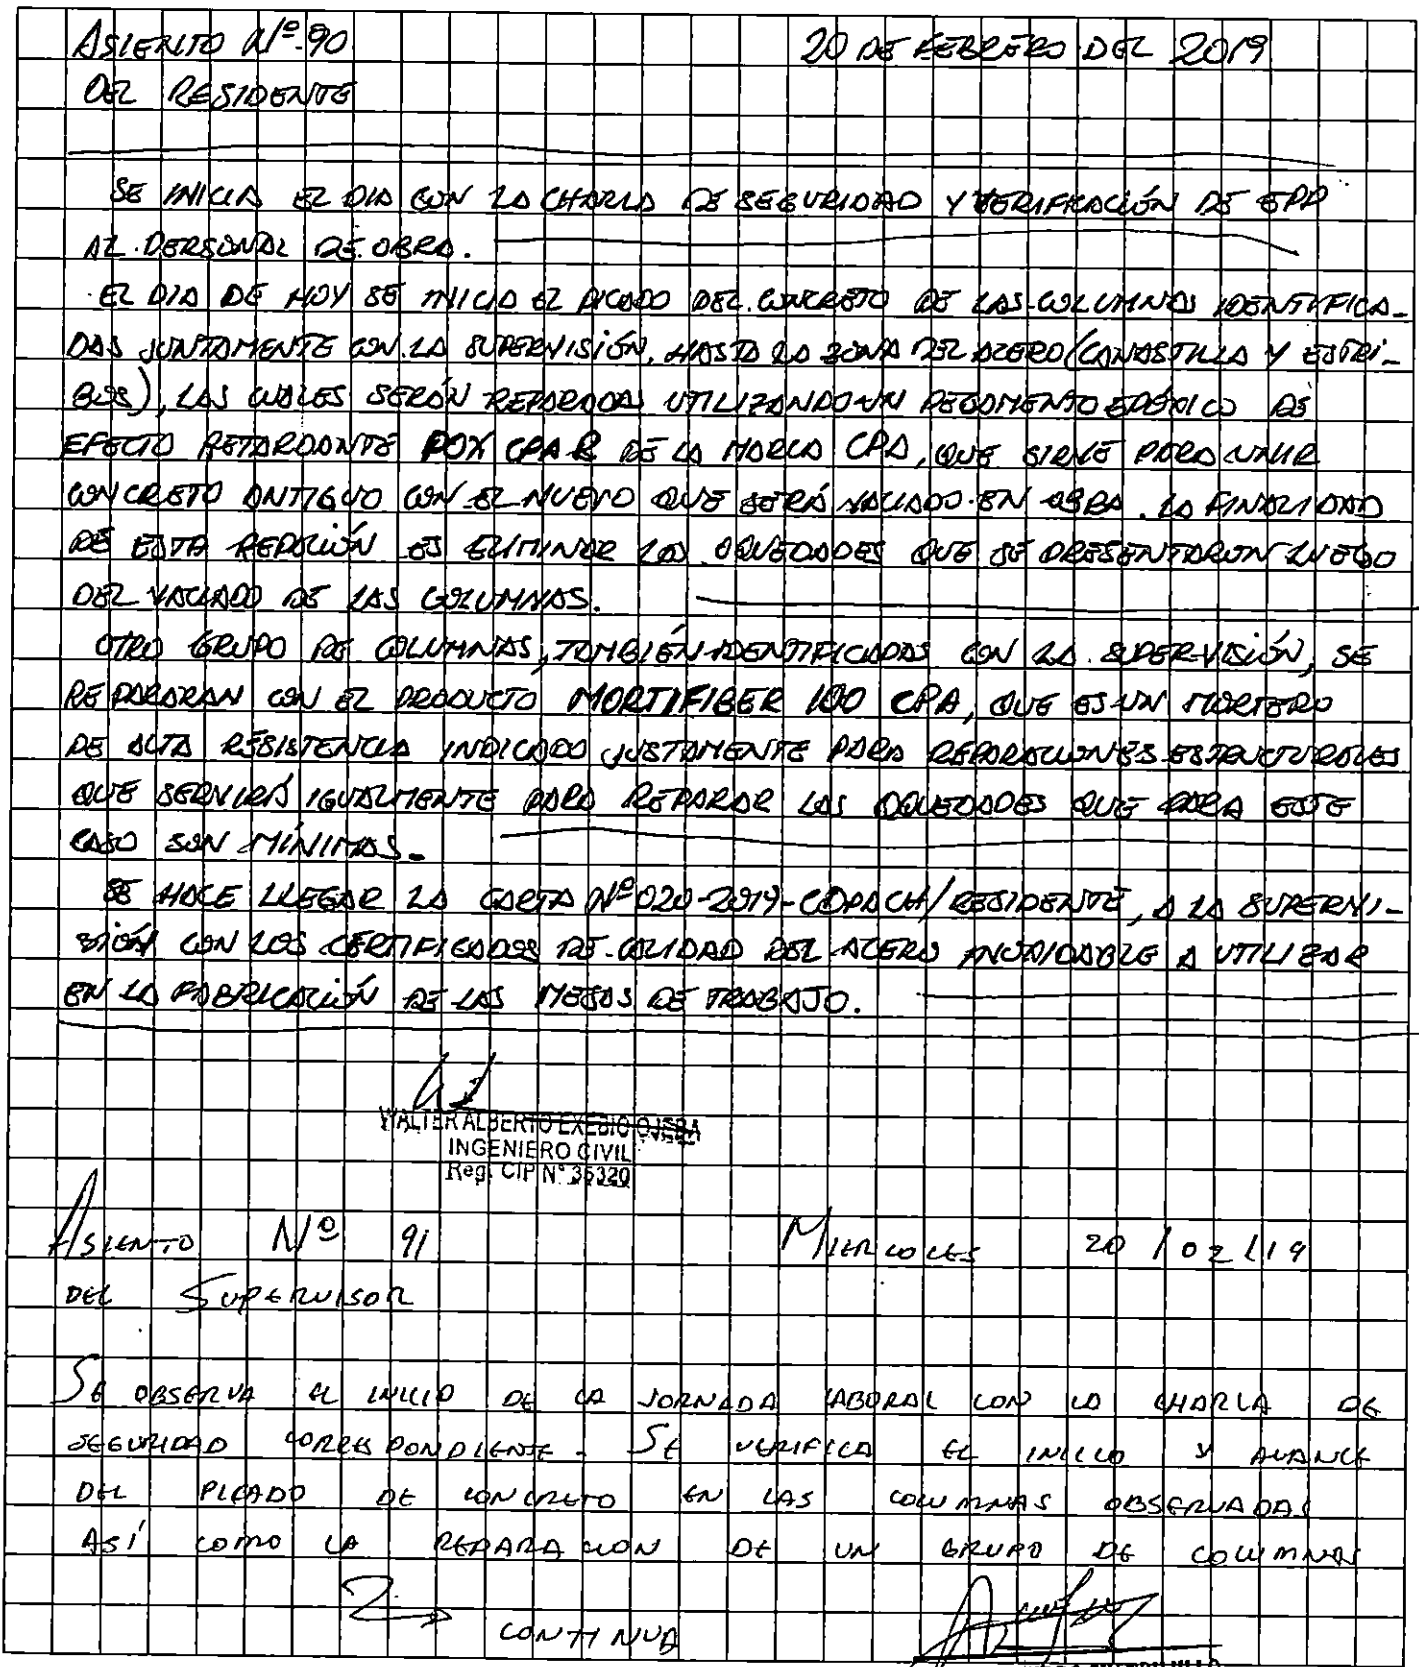 ASIENTO Nº 90 20 DE FEBRERO DEL 2019
DEL RESIDENTE
SE INICIA EL DIA CON LA CHARLA DE SEGURIDAD Y VERIFICACIÓN DE EPP
AL PERSONAL DE OBRA.
EL DIA DE HOY SE INICIA EL PICADO DEL CONCRETO DE LAS COLUMNAS IDENTIFICA-
DAS JUNTAMENTE CON LA SUPERVISIÓN, HASTA LA ZONA DEL ACERO (CANASTILLA Y ESTRI-
BOS), LAS CUALES SERÁN REPARADAS UTILIZANDO UN PEGAMENTO EPÓXICO DE
EFECTO RETARDANTE POX CPA R DE LA MARCA CPA, QUE SIRVE PARA UNIR
CONCRETO ANTIGUO CON EL NUEVO QUE SERÁ VACIADO EN OBRA. LA FINALIDAD
DE ESTA REPACIÓN ES ELIMINAR LAS OQUEDADES QUE SE PRESENTARON LUEGO
DEL VACIADO DE LAS COLUMNAS.
OTRO GRUPO DE COLUMNAS, TAMBIÉN IDENTIFICADAS CON LA SUPERVISIÓN, SE
REPARARAN CON EL PRODUCTO MORTIFIBER 100 CPA, QUE ES UN MORTERO
DE ALTA RESISTENCIA INDICADO JUSTAMENTE PARA REPARACIONES ESTRUCTURALES
QUE SERVIRÁ IGUALMENTE PARA REPARAR LAS OQUEDADES QUE PARA ESTE
CASO SON MÍNIMAS.
SE HACE LLEGAR LA CARTA Nº 020-2019-COPACH/RESIDENTE, A LA SUPERVI-
SIÓN CON LOS CERTIFICADOS DE CALIDAD DEL ACERO INOXIDABLE A UTILIZAR
EN LA FABRICACIÓN DE LAS MESAS DE TRABAJO.
WALTER ALBERTO EXEBIO OJEDA
INGENIERO CIVIL
Reg. CIP N° 35320
ASIENTO Nº 91 MIERCOLES 20/02/19
DEL SUPERVISOR
SE OBSERVA EL INICIO DE LA JORNADA LABORAL CON LA CHARLA DE
SEGURIDAD CORRESPONDIENTE. SE VERIFICA EL INICIO Y AVANCE
DEL PICADO DE CONCRETO EN LAS COLUMNAS OBSERVADAS
ASÍ COMO LA REPARACION DE UN GRUPO DE COLUMNAS
CONTINUA